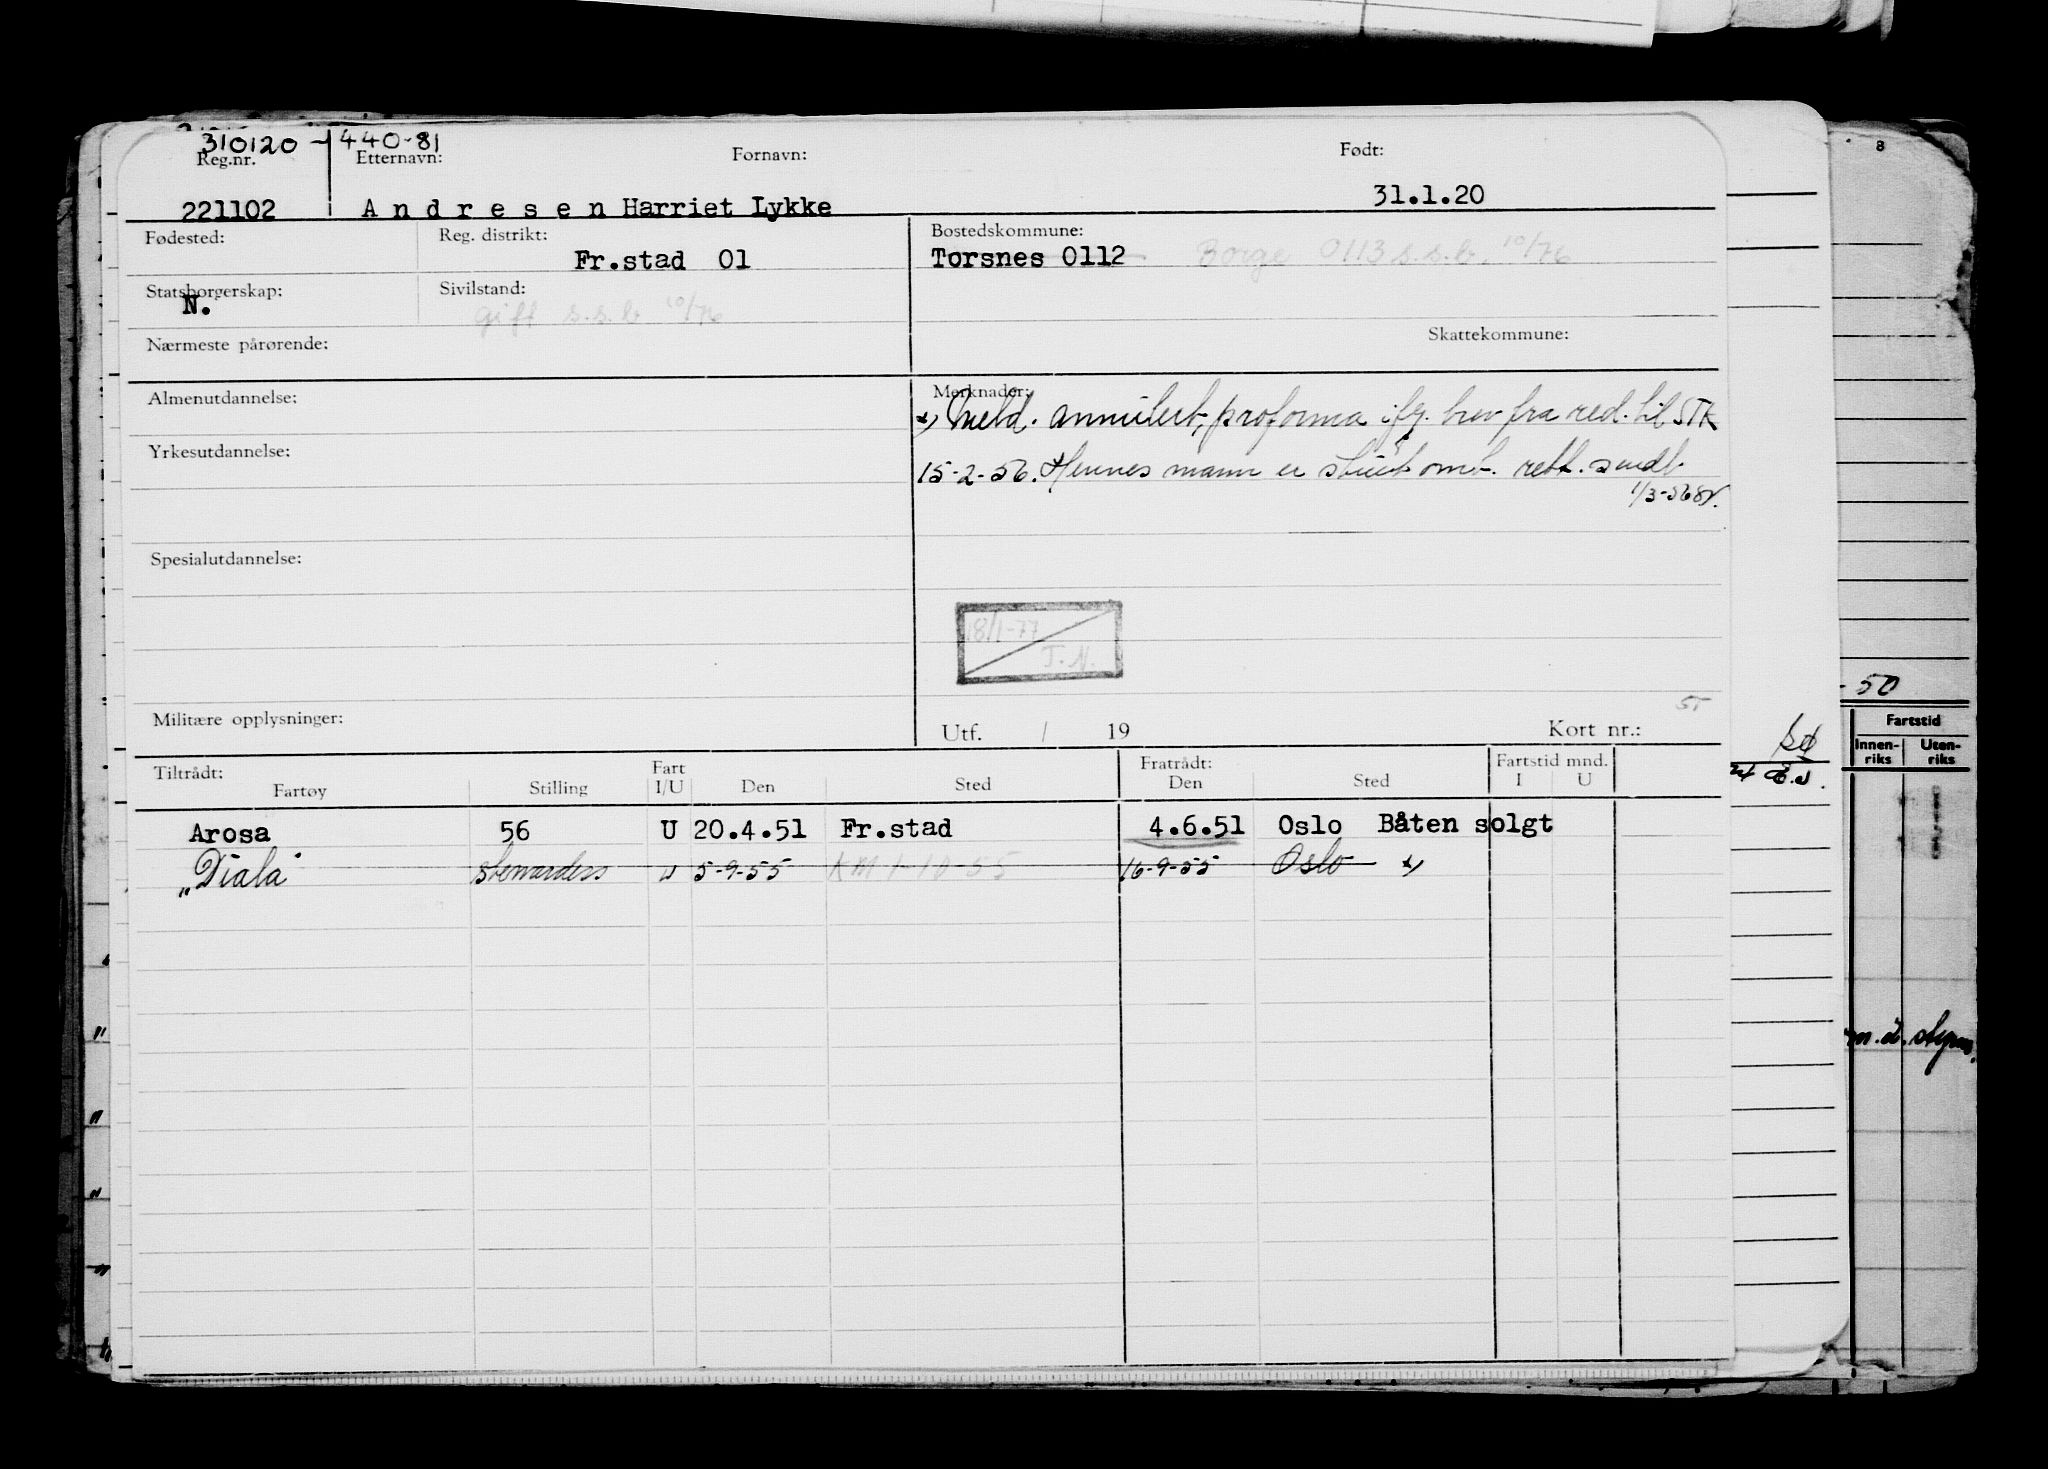 310120-440-81
Reg.nr. Etternavn: Fornavn: Født:
221102 Andresen Harriet Lykke 31.1.20
Fødested: Reg. distrikt: Bostedskommune:
Fr.stad 01 Torsnes 0112 Borge 0113 s.s.b. 10/76
Statsborgerskap: Sivilstand:
N. gift s.s.b 10/76
Nærmeste pårørende: Skattekommune:
Almenutdannelse: Merknader:
x) Meld. annullert, proforma ifg. brev fra red. til STK
Yrkesutdannelse:
15-2-56. Hennes mann er stuert omb. rett. sendt
1/3-56
Spesialutdannelse:
18/1-77
T.N.
Militære opplysninger: Utf. / 19 Kort nr.:
Tiltrådt: Fart Fratrådt: Fartstid mnd.
Fartøy Stilling I/U Den Sted Den Sted I U
Arosa 56 U 20.4.51 Fr.stad 4.6.51 Oslo Båten solgt
"Diala" stewardess U 5-9-55 KM 1-10-55 16-9-55 Oslo x)
8
- 50
Fartstid
Innen- Uten-
riks riks